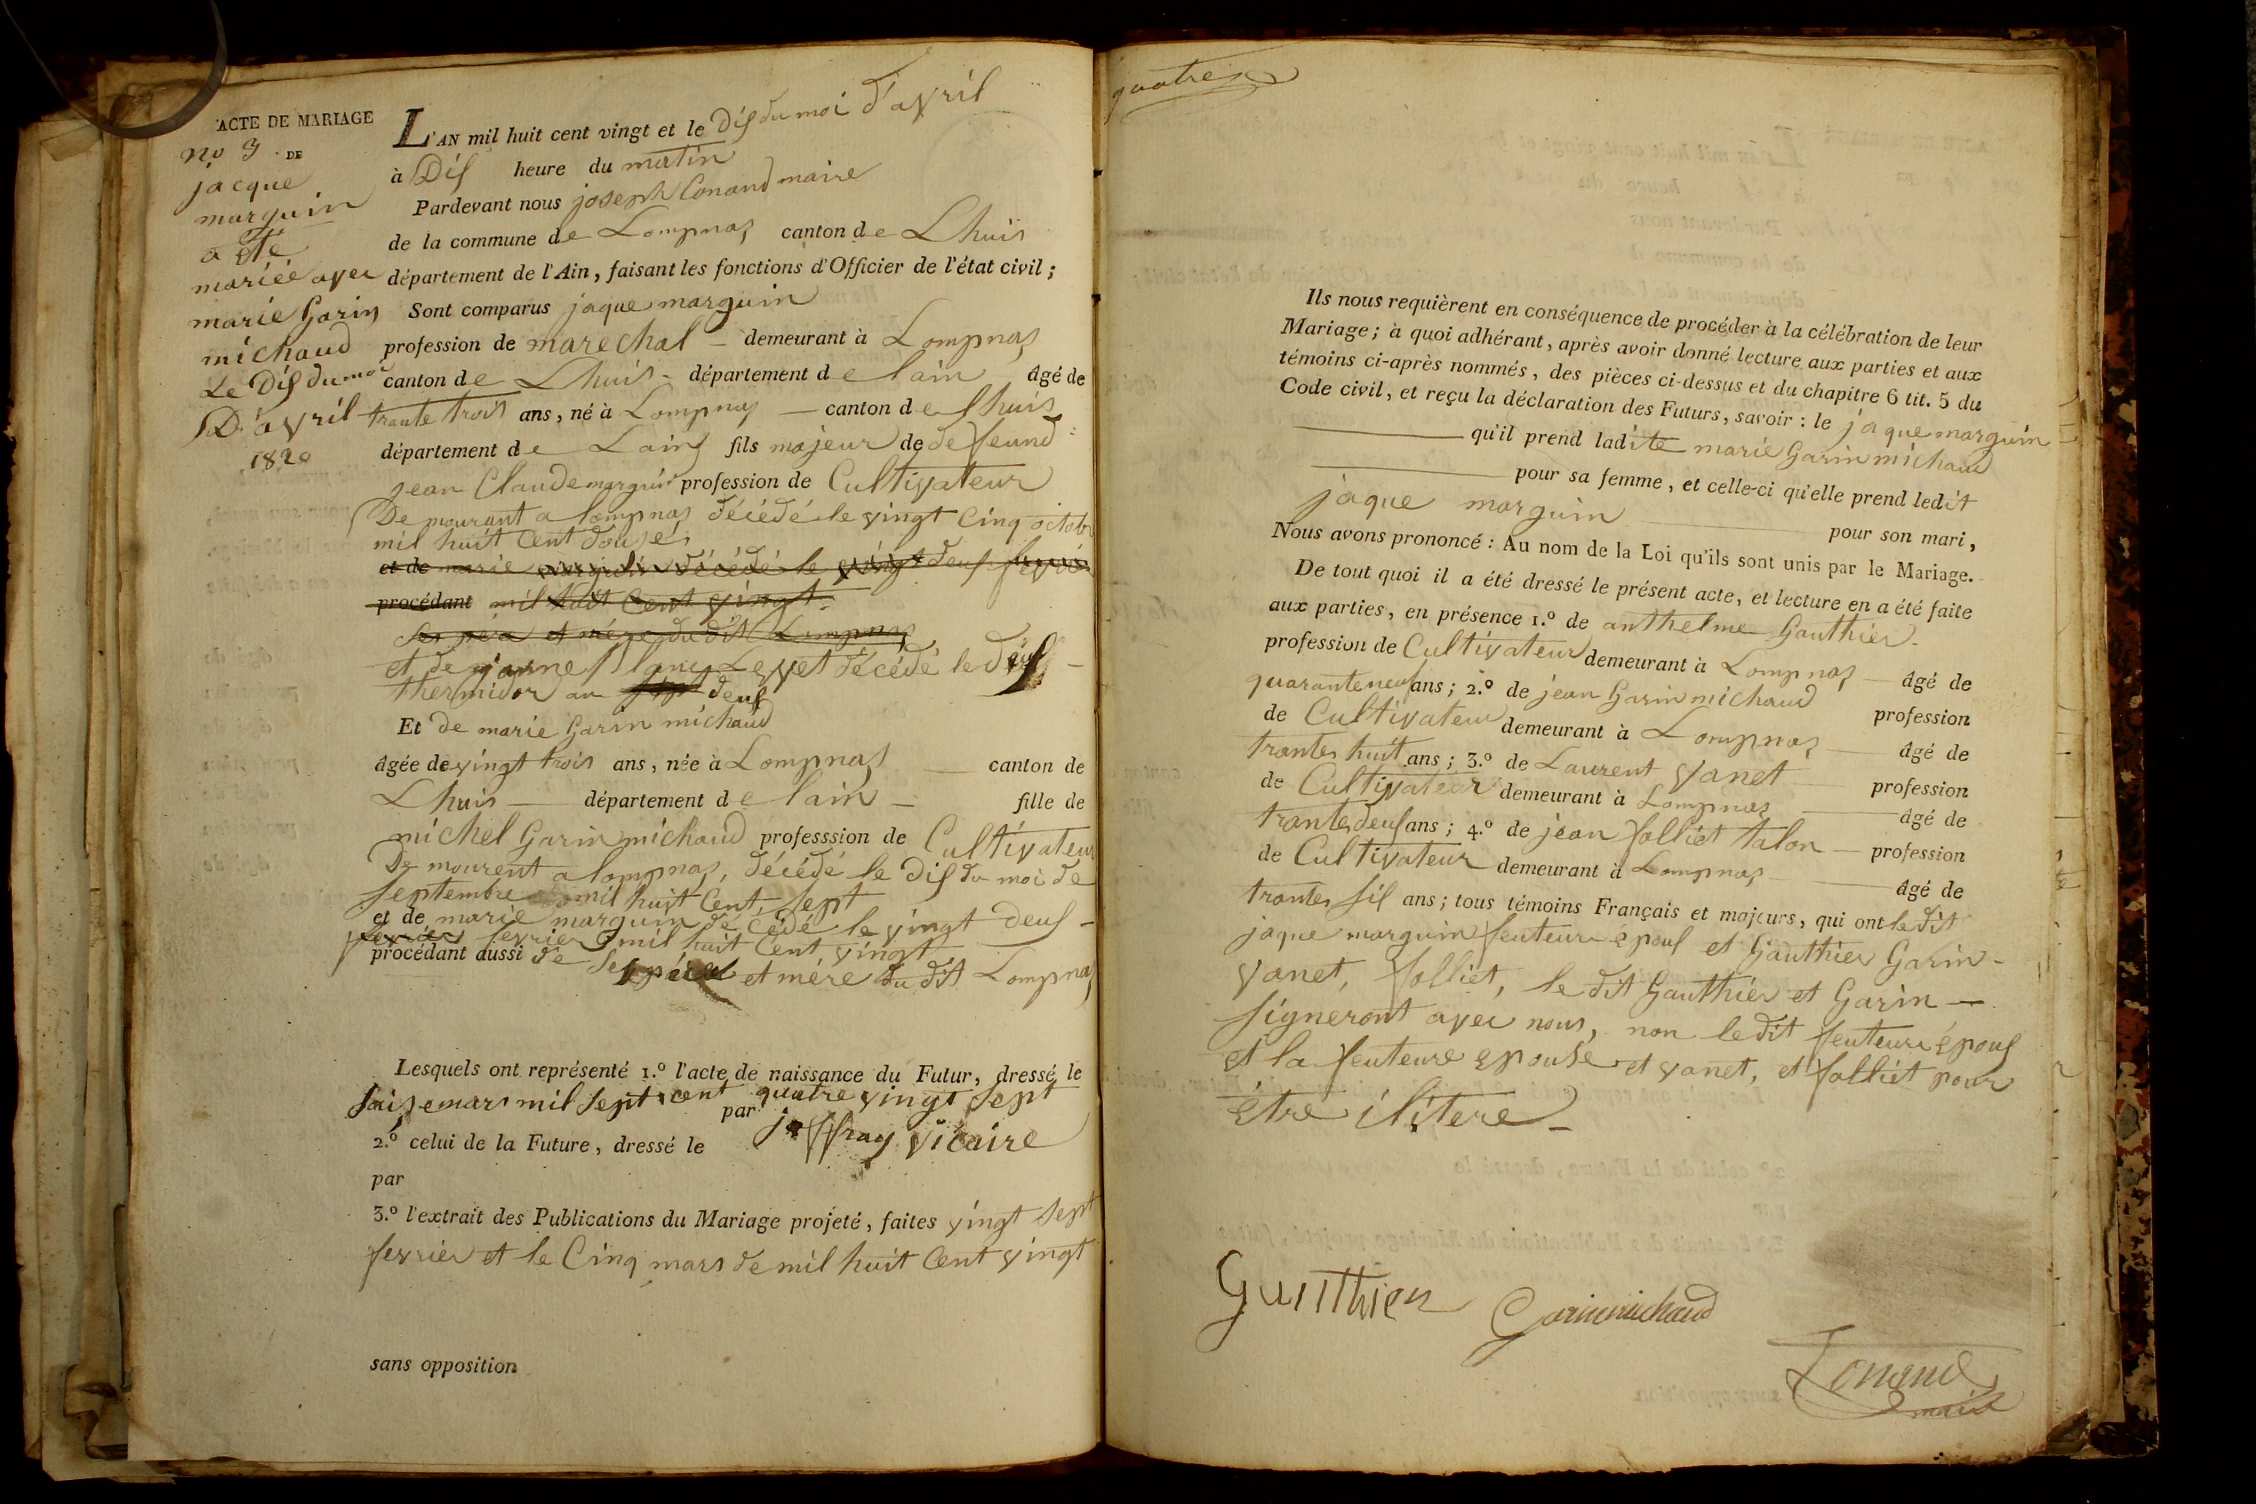 ACTE DE MARIAGE
no 3 DE
jacque
marguin
a été
mariée avec
marie Garin
michaud
Le Dis du moi
D'avril
1820
L'AN mil huit cent vingt et le Dis du moi d'avril
à Dis heure du matin
Pardevant nous joseph Conand maire
de la commune de Lompnas canton de Lhuis
département de l'Ain, faisant les fonctions d'Officier de l'état civil;
Sont comparus jaque marguin
profession de marechal — demeurant à Lompnas
canton de Lhuis - département de lain âgé de
trante trois ans, né à Lompnas — canton de lhuis
département de Lain fils majeur de defeund
jean Claude marguin profession de Cultivateur
Demourant a lompnas décédé le vingt Cinq octobr
mil huit Cent douse
et de marie marguin décédé le vingt deus fevrié
procédant mil huit Cent vingt
Ses péa et mére du dit Lompnas
et de Levet décédé le
thermidor an deus
Et de marie Garin michaud
âgée de vingt trois ans, née à Lompnas — canton de
Lhuis — département de lain — fille de
michel Garin michaud professsion de Cultivateur
De mourent a lompnas, décédé le Dis du moi de
Septembre mil huit Cent Sept
et de marie marguin décédé le vingt deus -
fevrier mil huit Cent vingt
procédant aussi de Ses et mére du dit Lompnas
Lesquels ont représenté 1.º l'acte de naissance du Futur, dressé le
Saise mars mil Sept cent quatre vingt Sept
par jaffray vicaire
2.º celui de la Future, dressé le
par
3.º l'extrait des Publications du Mariage projeté, faites vingt Sept
fevrier et le Cinq mars de mil huit Cent vingt
sans opposition
quatre
Ils nous requièrent en conséquence de procéder à la célébration de leur
Mariage; à quoi adhérant, après avoir donné lecture aux parties et aux
témoins ci-après nommés, des pièces ci-dessus et du chapitre 6 tit. 5 du
Code civil, et reçu la déclaration des Futurs, savoir: le jaque marguin
qu'il prend ladite marie Garin michaud
pour sa femme, et celle-ci qu'elle prend ledit
jaque marguin pour son mari,
Nous avons prononcé: Au nom de la Loi qu'ils sont unis par le Mariage.
De tout quoi il a été dressé le présent acte, et lecture en a été faite
aux parties, en présence 1.º de anthelme Gauthier
profession de Cultivateur demeurant à Lompnas — âgé de
quarante neuf ans; 2.º de jean Garin michaud profession
de Cultivateur demeurant à Lompnas — âgé de
trantes huit ans; 3.º de Laurent vanet — profession
de Cultivateur demeurant à Lompnas — âgé de
trantes deus ans; 4.º de jean folliet talon — profession
de Cultivateur demeurant à Lompnas — âgé de
trantes sis ans; tous témoins Français et majeurs, qui ont le dit
jaque marguin feuteure epous et Gauthier Garin -
vanet, folliet, le dit Gauthier et Garin —
Signeront avec nous, non le dit feuteure épous
et la feuteure epouse et vanet, et folliet pour
être ilitere —
Guitthien
Garinmichaud
Conand
maire